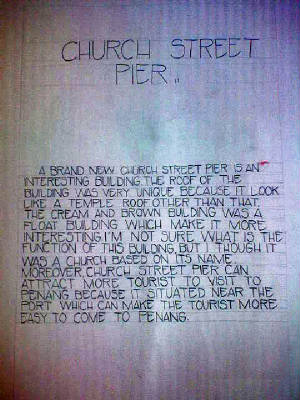 CHURCH STREET
PIER..
A BRAND NEW CHURCH STREET PIER IS AN
INTERESTING BUILDING. THE ROOF OF THE
BUILDING WAS VERY UNIQUE BECAUSE IT LOOK
LIKE A TEMPLE ROOF. OTHER THAN THAT,
THE CREAM AND BROWN BUILDING WAS A
FLOAT BUILDING WHICH MAKE IT MORE
INTERESTING. I'M NOT SURE WHAT IS THE
FUNCTION OF THIS BUILDING, BUT I THOUGH IT
WAS A CHURCH BASED ON ITS NAME.
MOREOVER CHURCH STREET PIER CAN
ATTRACT MORE TOURIST TO VISIT TO
PENANG BECAUSE IT SITUATED NEAR THE
PORT WHICH CAN MAKE THE TOURIST MORE
EASY TO COME TO PENANG.